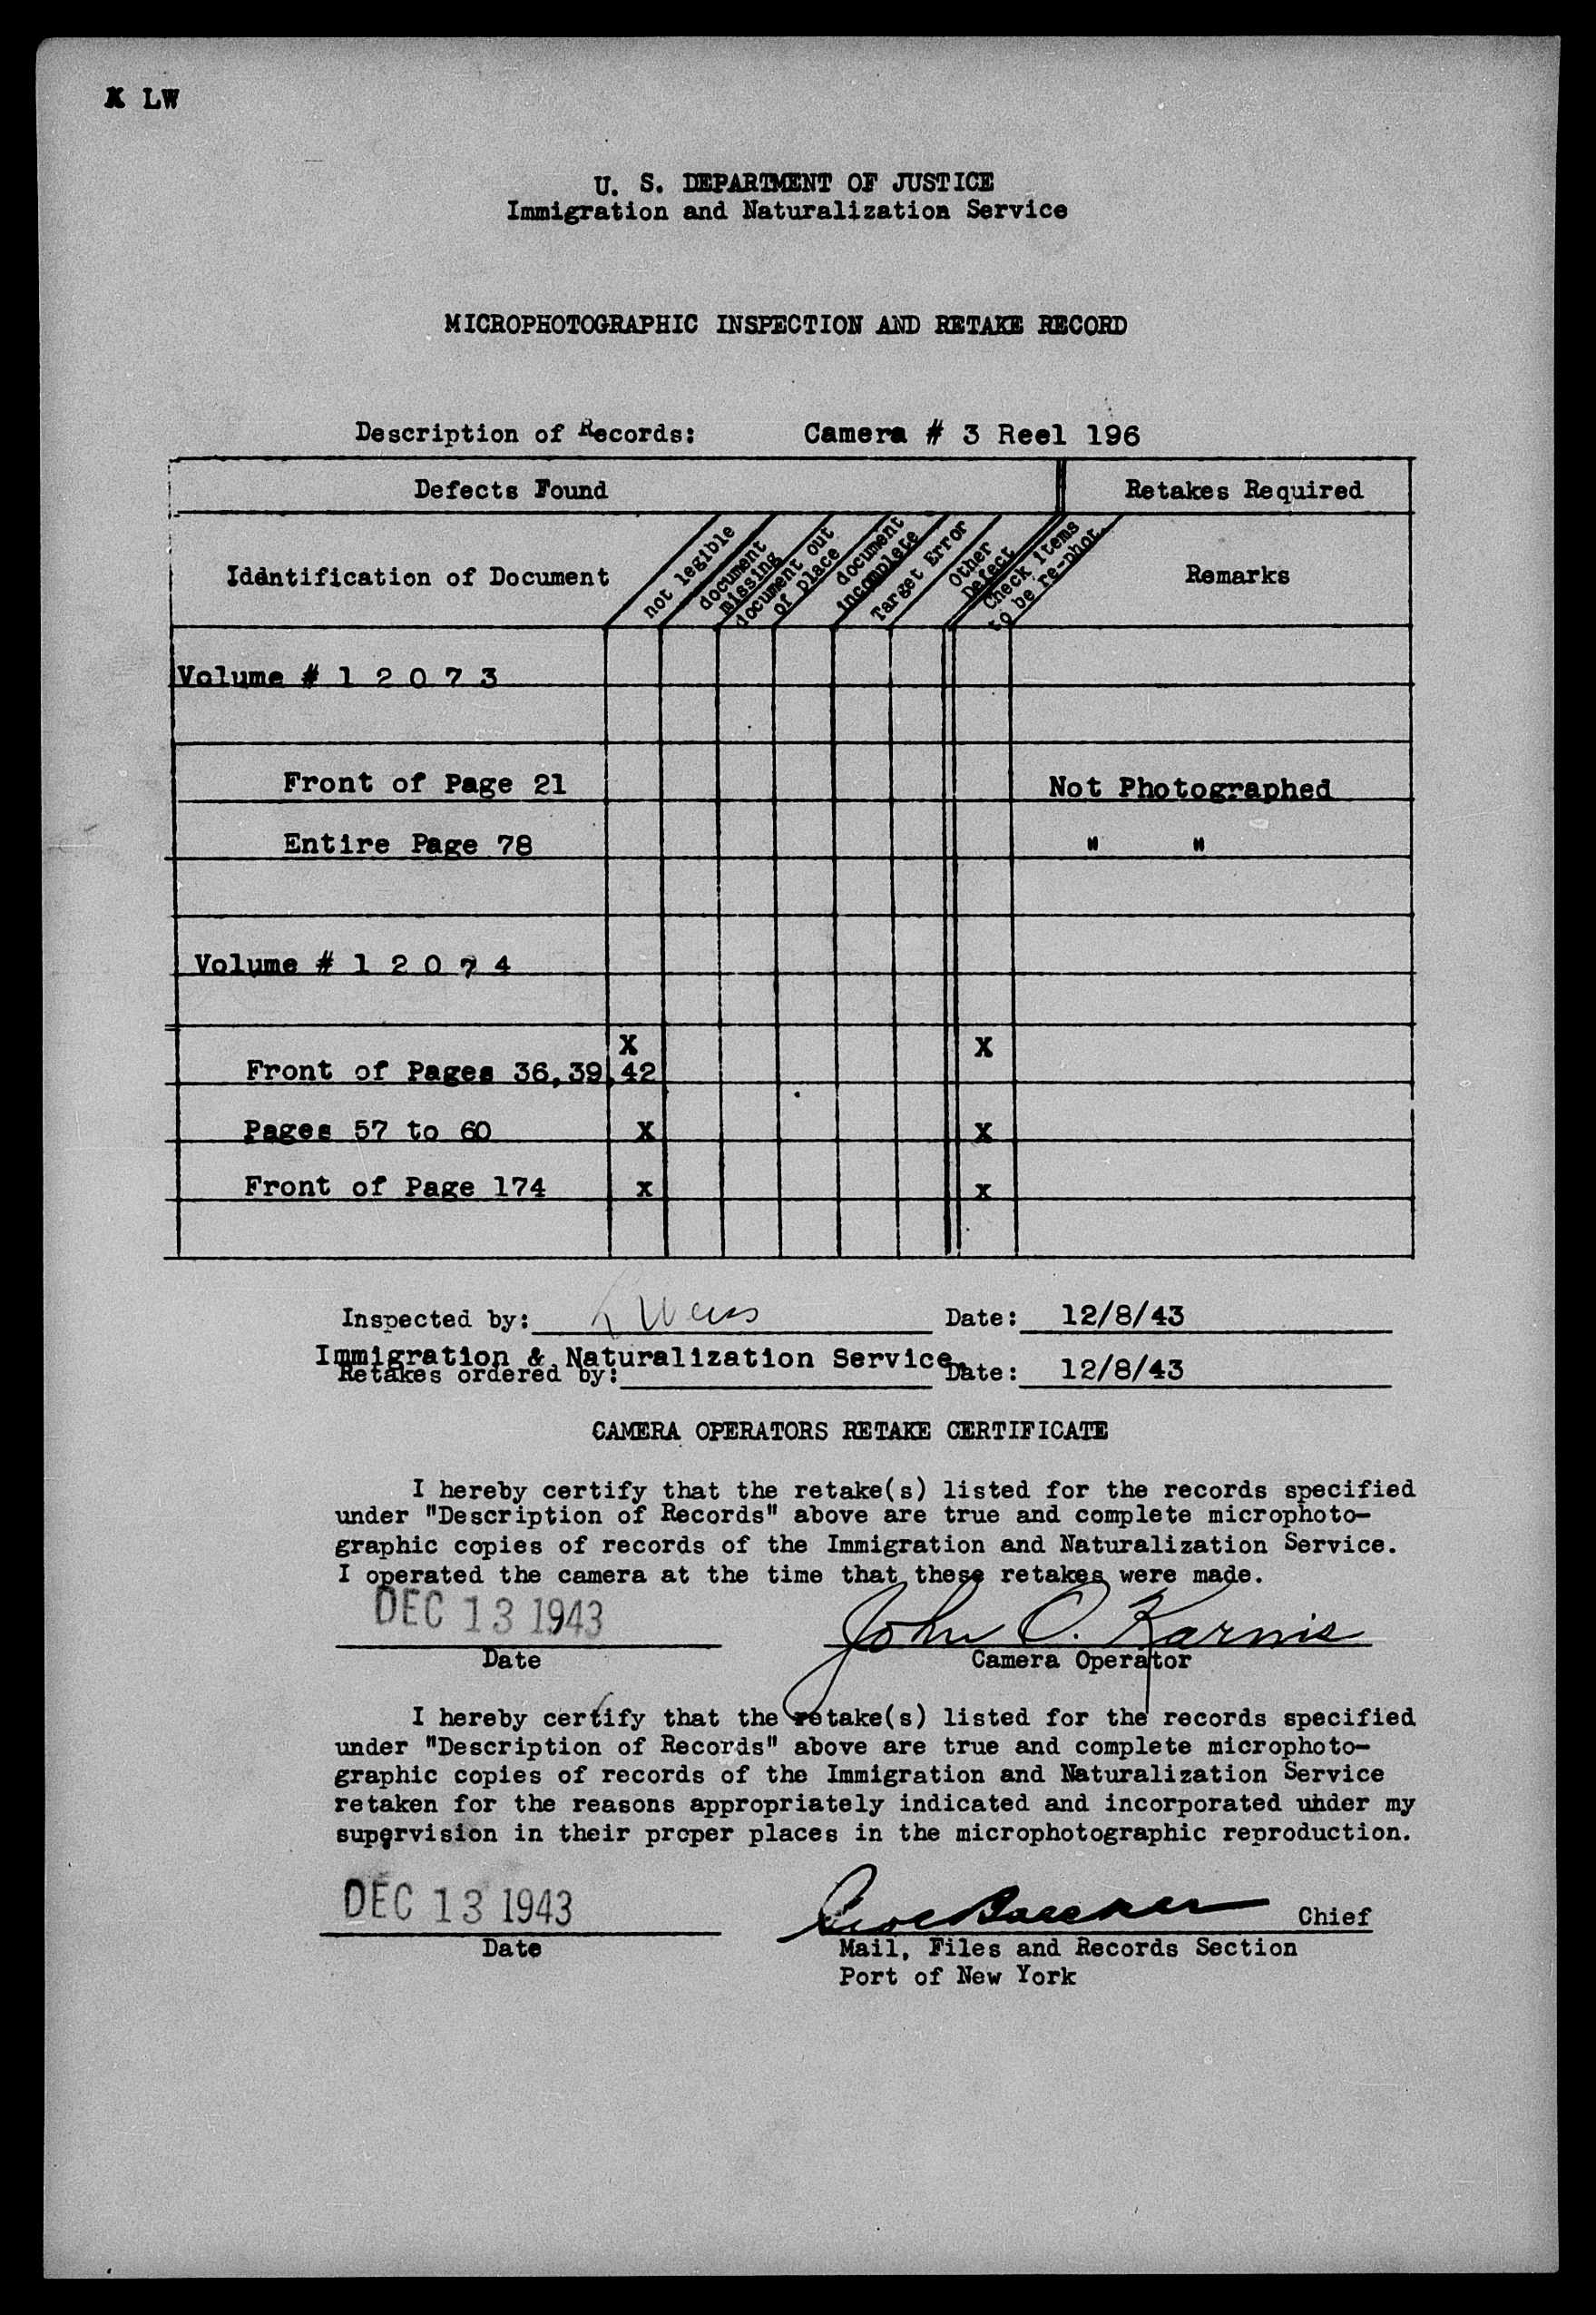 X LW
U. S. DEPARTMENT OF JUSTICE
Immigration and Naturalization Service
MICROPHOTOGRAPHIC INSPECTION AND RETAKE RECORD
Description of Records: Camera # 3 Reel 196
Defects Found Retakes Required
Identification of Document not legible document missing document out of place document incomplete Target Error Other Defect Check items to be re-phot. Remarks
Volume # 1 2 0 7 3
Front of Page 21 Not Photographed
Entire Page 78 " "
Volume # 1 2 0 7 4
Front of Pages 36,39,42 X X
Pages 57 to 60 X X
Front of Page 174 X X
Inspected by: Weiss Date: 12/8/43
Immigration & Naturalization Service.
Retakes ordered by: Date: 12/8/43
CAMERA OPERATORS RETAKE CERTIFICATE
I hereby certify that the retake(s) listed for the records specified
under "Description of Records" above are true and complete microphoto-
graphic copies of records of the Immigration and Naturalization Service.
I operated the camera at the time that these retakes were made.
DEC 13 1943 John O. Karnis
Date Camera Operator
I hereby certify that the retake(s) listed for the records specified
under "Description of Records" above are true and complete microphoto-
graphic copies of records of the Immigration and Naturalization Service
retaken for the reasons appropriately indicated and incorporated under my
supervision in their proper places in the microphotographic reproduction.
DEC 13 1943 Chief
Date Mail, Files and Records Section
Port of New York